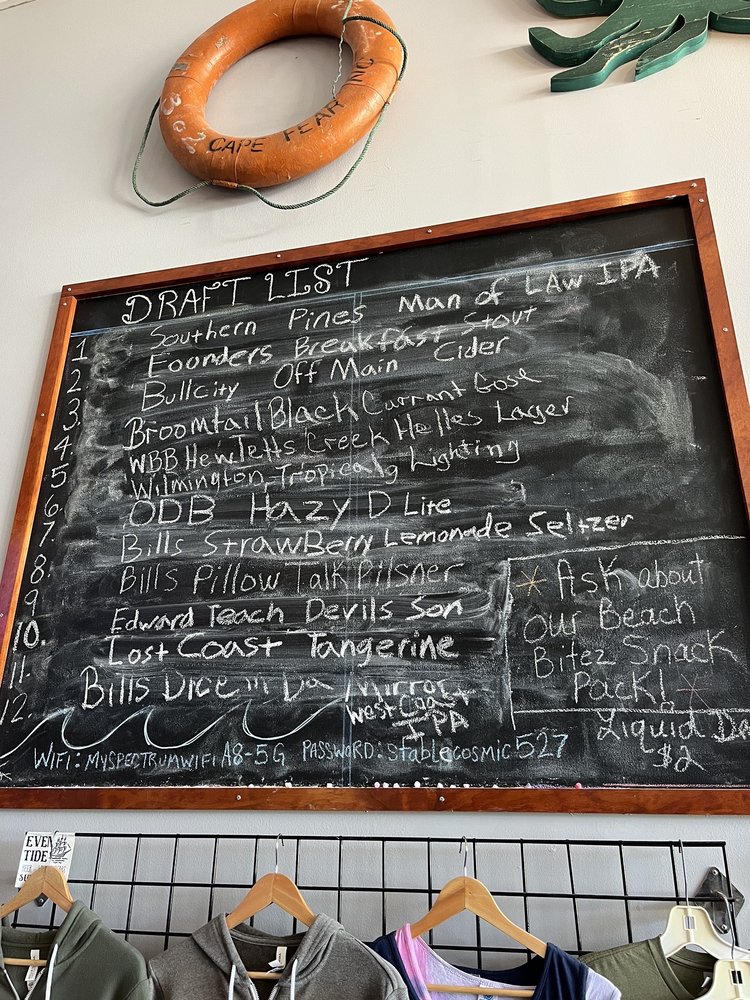 302
CAPE FEAR NC
DRAFT LIST
1 Southern Pines Man of LAw IPA
2. Founders Breakfast Stout
3. Bullcity Off Main Cider
4. Broomtail Black Currant Gose
5. WBB Hewletts Creek Helles Lager
6. Wilmington Tropical Lighting
7. ODB Hazy D Lite
8. Bills StrawBerry Lemonade Seltzer
9 Bills Pillow Talk Pilsner
10. Edward Teach Devils Son
11. Lost Coast Tangerine
12. Bills Dice in Da Mirror
West Coast
IPA
* Ask about
Our Beach
Bitez Snack
Pack! *
Liquid
$2
WIFI: MYSPECTRUMWIFI A8-5G PASSWORD: Stablecosmic527
EVEN
TIDE